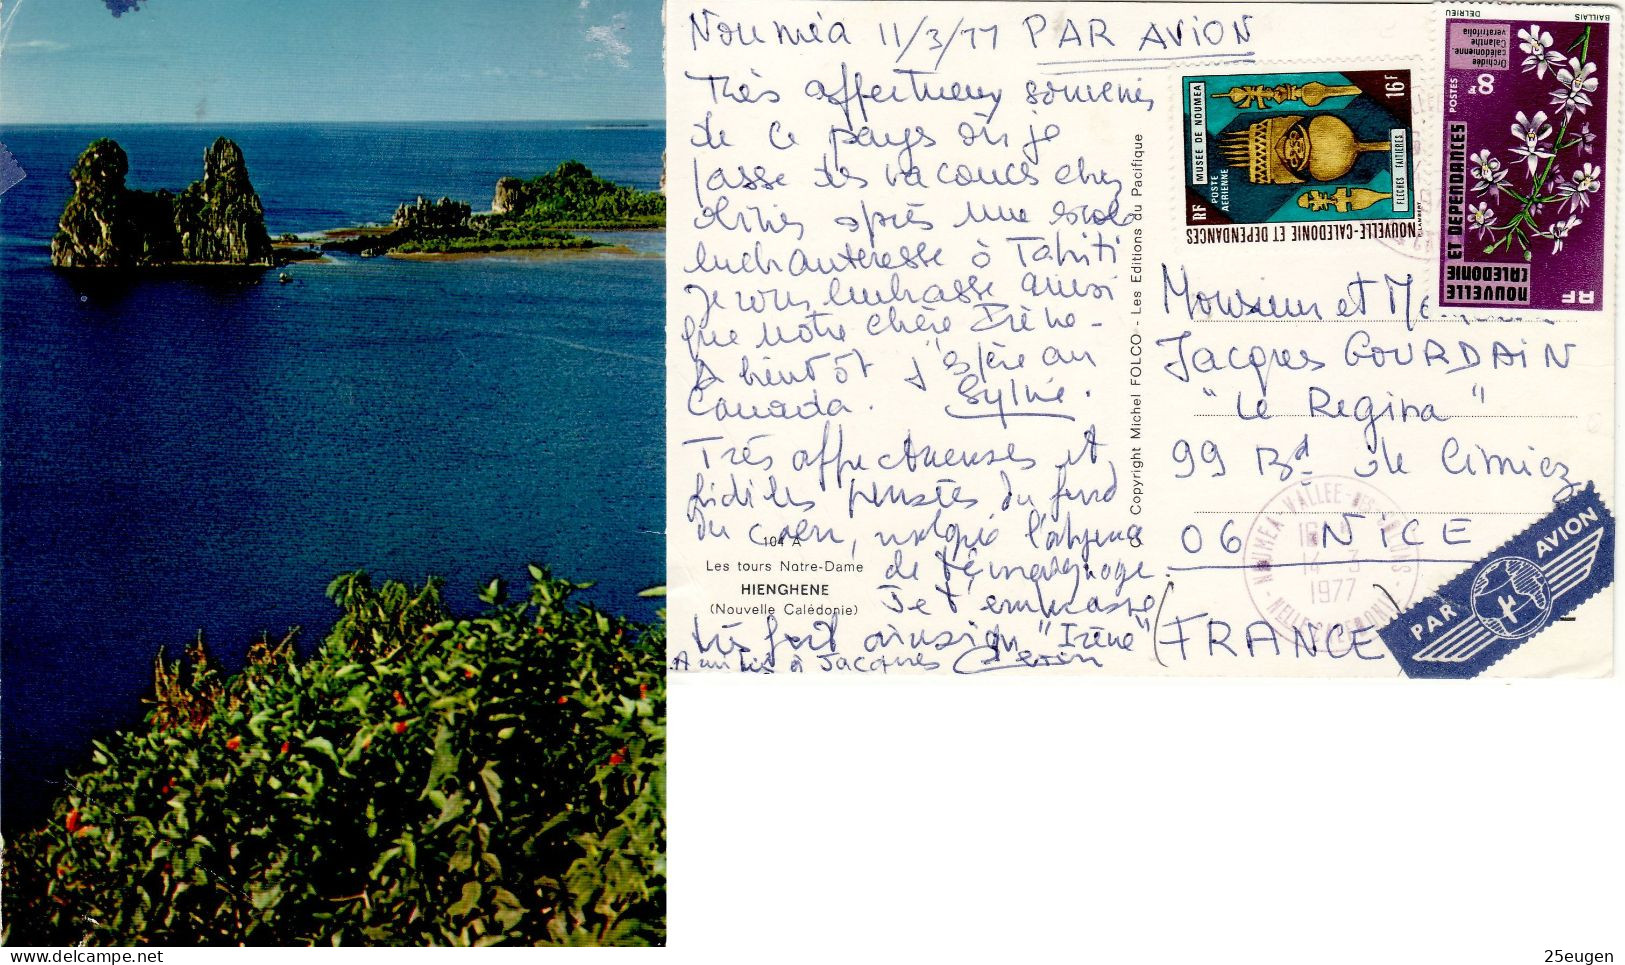 Nouméa 11/3/77 PAR AVION
Très affectueux souvenirs
de ce pays où je
passe des vacances chez
après une escale
enchanteresse à Tahiti
Je vous embrasse ainsi
que votre chère Irène -
A bientôt j'espère au
Canada. Sylvie.
Très affectueuses et
fidèles pensées du fond
du cœur, malgré l'absence
de témoignage.
Je t'embrasse
très fort ainsi qu' "Irène"
Amitiés à Jacques
104 A
Les tours Notre-Dame
HIENGHENE
(Nouvelle Calédonie)
© Copyright Michel FOLCO - Les Editions du Pacifique
MUSEE DE NOUMEA
16F
RF
POSTE AERIENNE
FLECHES FAITIERES
NOUVELLE-CALEDONIE ET DEPENDANCES
BAILLAIS
DELRIEU
Orchidée
calédonienne.
Calanthe
veratrifolia
8F
POSTES
NOUVELLE
CALÉDONIE
ET DÉPENDANCES
RF
Monsieur et
Jacques GOURDAIN
"Le Regina"
99 Bd de Cimiez
06 NICE
(FRANCE)
NOUMEA-VALLEE-DES-COLONS
14-3
1977
NELLE CALEDONIE
PAR AVION
delcampe.net
25eugen